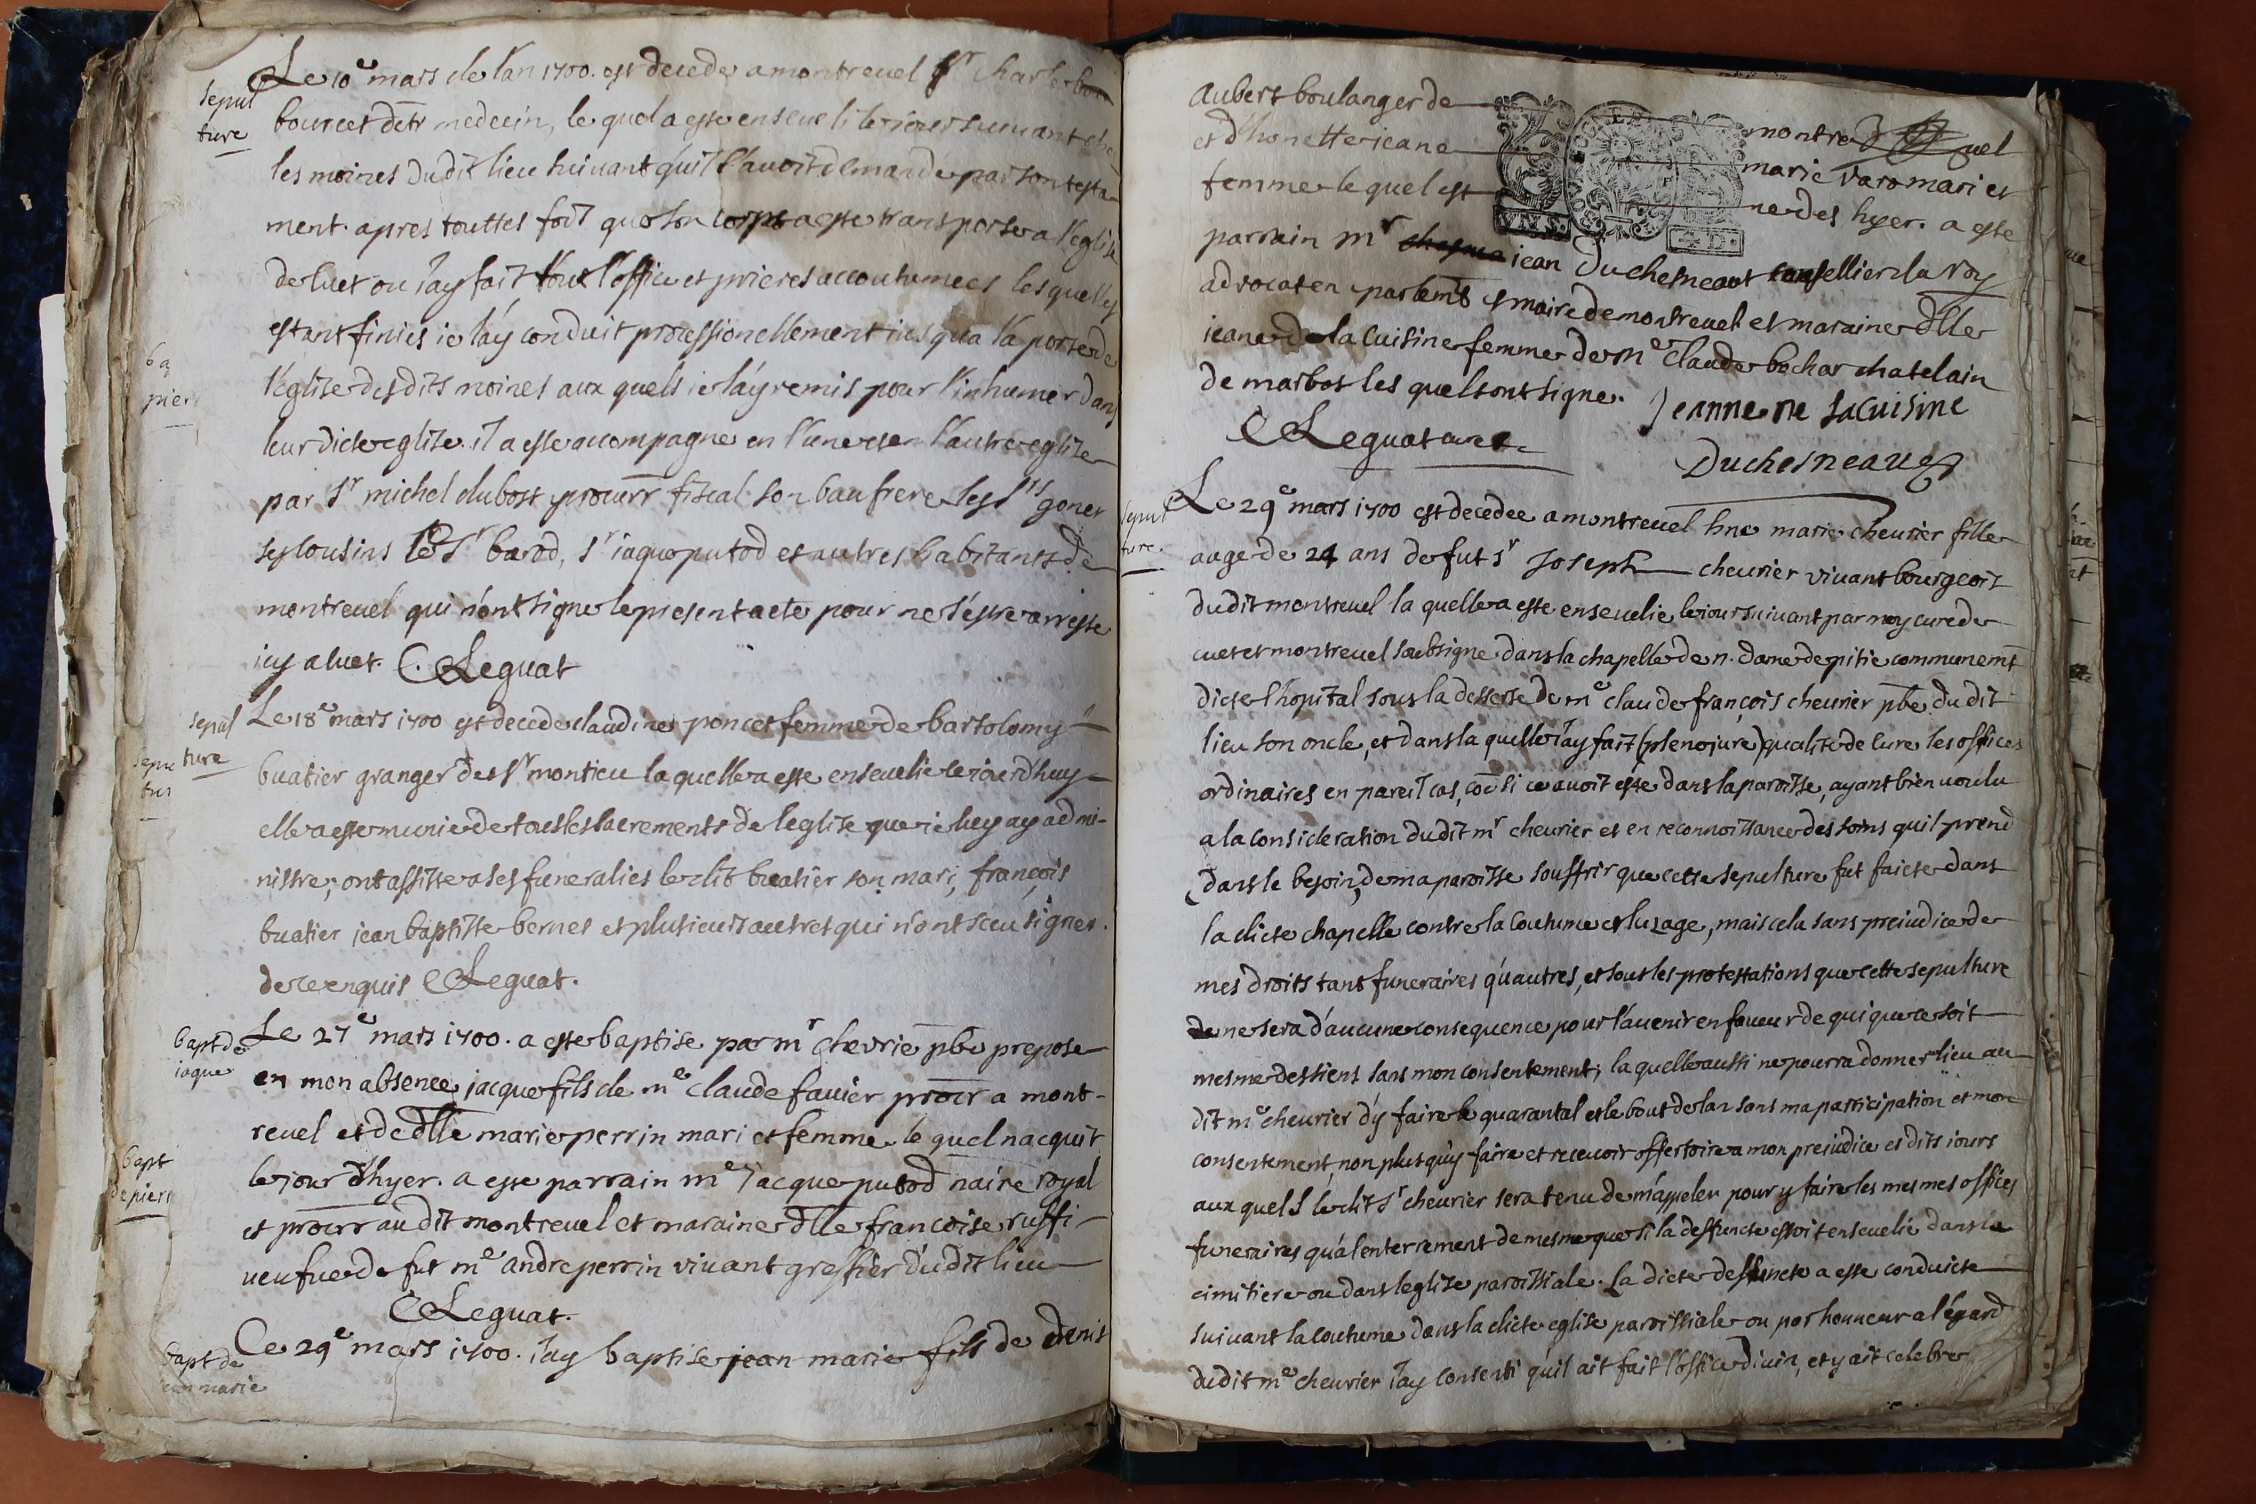 sepul
ture
Le 10e mars de l'an 1700. est decede a montrevel Sr Charle
bourcet dctr medecin, le quel a este enseveli le iour suivant
les moines dudit lieu suivant qu'il l'avoit demande par son testa
ment. apres touttes fois que son corps a este transporte a l'eglise
de cuet ou i'ay fait tout l'office et prieres accoutumees lesquelles
estant finies ie l'ay conduit processionellement iusqu'a la porte de
l'eglise desdits moines aux quels ie l'ay remis pour l'inhumer dans
leur dicte eglise. il a este accompagne en l'une et en l'autre eglise
par Sr michel dubost procurr fiscal son baufrere les Srs gonet
ses cousins le Sr barod, Sr iaque putod et autres habitants de
montrevel qui n'ont signe le present acte pour ne s'estre arreste
icy a cuet. C. Leguat
sepul
ture
Le 18e mars 1700 est decede claudine poncet femme de bartolomy
buatier granger des Sr montieu la quelle a este ensevelie le iourd'huy
elle a este munie de tous les sacrements de l'eglise que ie luy ay admi-
nistre; ont assiste a ses funeralies ledit buatier son mari, françois
buatier jean baptiste bernet et plusieurs autres qui n'ont sceu signer.
de ce enquis C Leguat.
bapt de
iaque
Le 27e mars 1700. a este baptise par mr chevrie pbre prepose
en mon absence jacque fils de me claude favier procr a mont-
revel et de dlle marie perrin mari et femme le quel nacquit
le iour d'hyer. a este parrain me iacque putod n'aire royal
et procrr au dit montrevel et maraine dlle francoise ruffi-
veufve de fut me andre perrin vivant greffier du dit lieu
C Leguat.
bapt de
jean marie
Ce 29e mars 1700. i'ay baptise jean marie fils de denis
aubert boulanger de montrevel
et d'honette ieane marie varo mari et
femme le quel est ne des hyer. a este
parrain mr jean Duchesneaut consellier du roy
advocat en parlemt et maire de montrevel et maraine dlle
ieane de la cuisine femme de me claude bochar chatelain
de marbos les quels ont signe. Jeanne De Lacuisine
C Leguat cure
Duchesneaue
sepul
ture.
Le 29e mars 1700 est decedee a montrevel hne marie chevrier fille
aage de 24 ans de fut Sr Joseph chevrier vivant bourgeois
dudit montrevel la quelle a este ensevelie le iour suivant par moy cure de
cuet et montrevel soubsigne dans la chapelle de n. dame de pitie communemt
dicte l'hopital sous la desserte de me claude françois chevrier pbre du dit
lieu son oncle, et dans la quelle i'ay fait (pleno jure) qualite de cure les offices
ordinaires en pareil cas, coe si ce avoit este dans la paroisse, ayant bien voulu
a la consideration dudit mr chevrier et en reconnoissance des soins qu'il prend
dans le besoin, de ma paroisse souffrir que cette sepulture fut faicte dans
la dicte chapelle contre la coutume et l'uzage, mais cela sans preiudice de
mes droits tant funeraires qu'autres, et sous les protestations que cette sepulture
ne sera d'aucune consequence pour l'avenir en faveur de qui que ce soit
mesme des siens sans mon consentement; la quelle aussi ne pourra donner lieu au
dit me chevrier d'y faire le quarantal et le bout de l'an sans ma participation et mon
consentement, non plus qu'y faire et recevoir offertoire a mon preiudice es dits iours
aux quels le dit Sr chevrier sera tenu de m'appeler pour y faire les mesmes offices
funeraires qu'a l'enterrement de mesme que si la deffuncte estoit ensevelie dans le
cimitiere ou dans l'eglise paroissiale. la dicte deffuncte a este conduicte
suivant la coutume dans la dicte eglise paroissiale ou par honneur a l'egard
dudit me chevrier i'ay consenti qu'il ait fait l'office divin, et y ait celebre